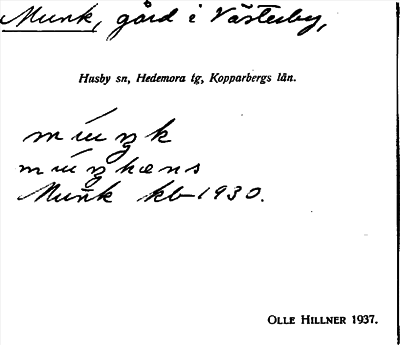 Munk, gård i Västerby,
Husby sn, Hedemora tg, Kopparbergs län.
múŋk
múŋkæns
Munk kb 1930.
OLLE HILLNER 1937.